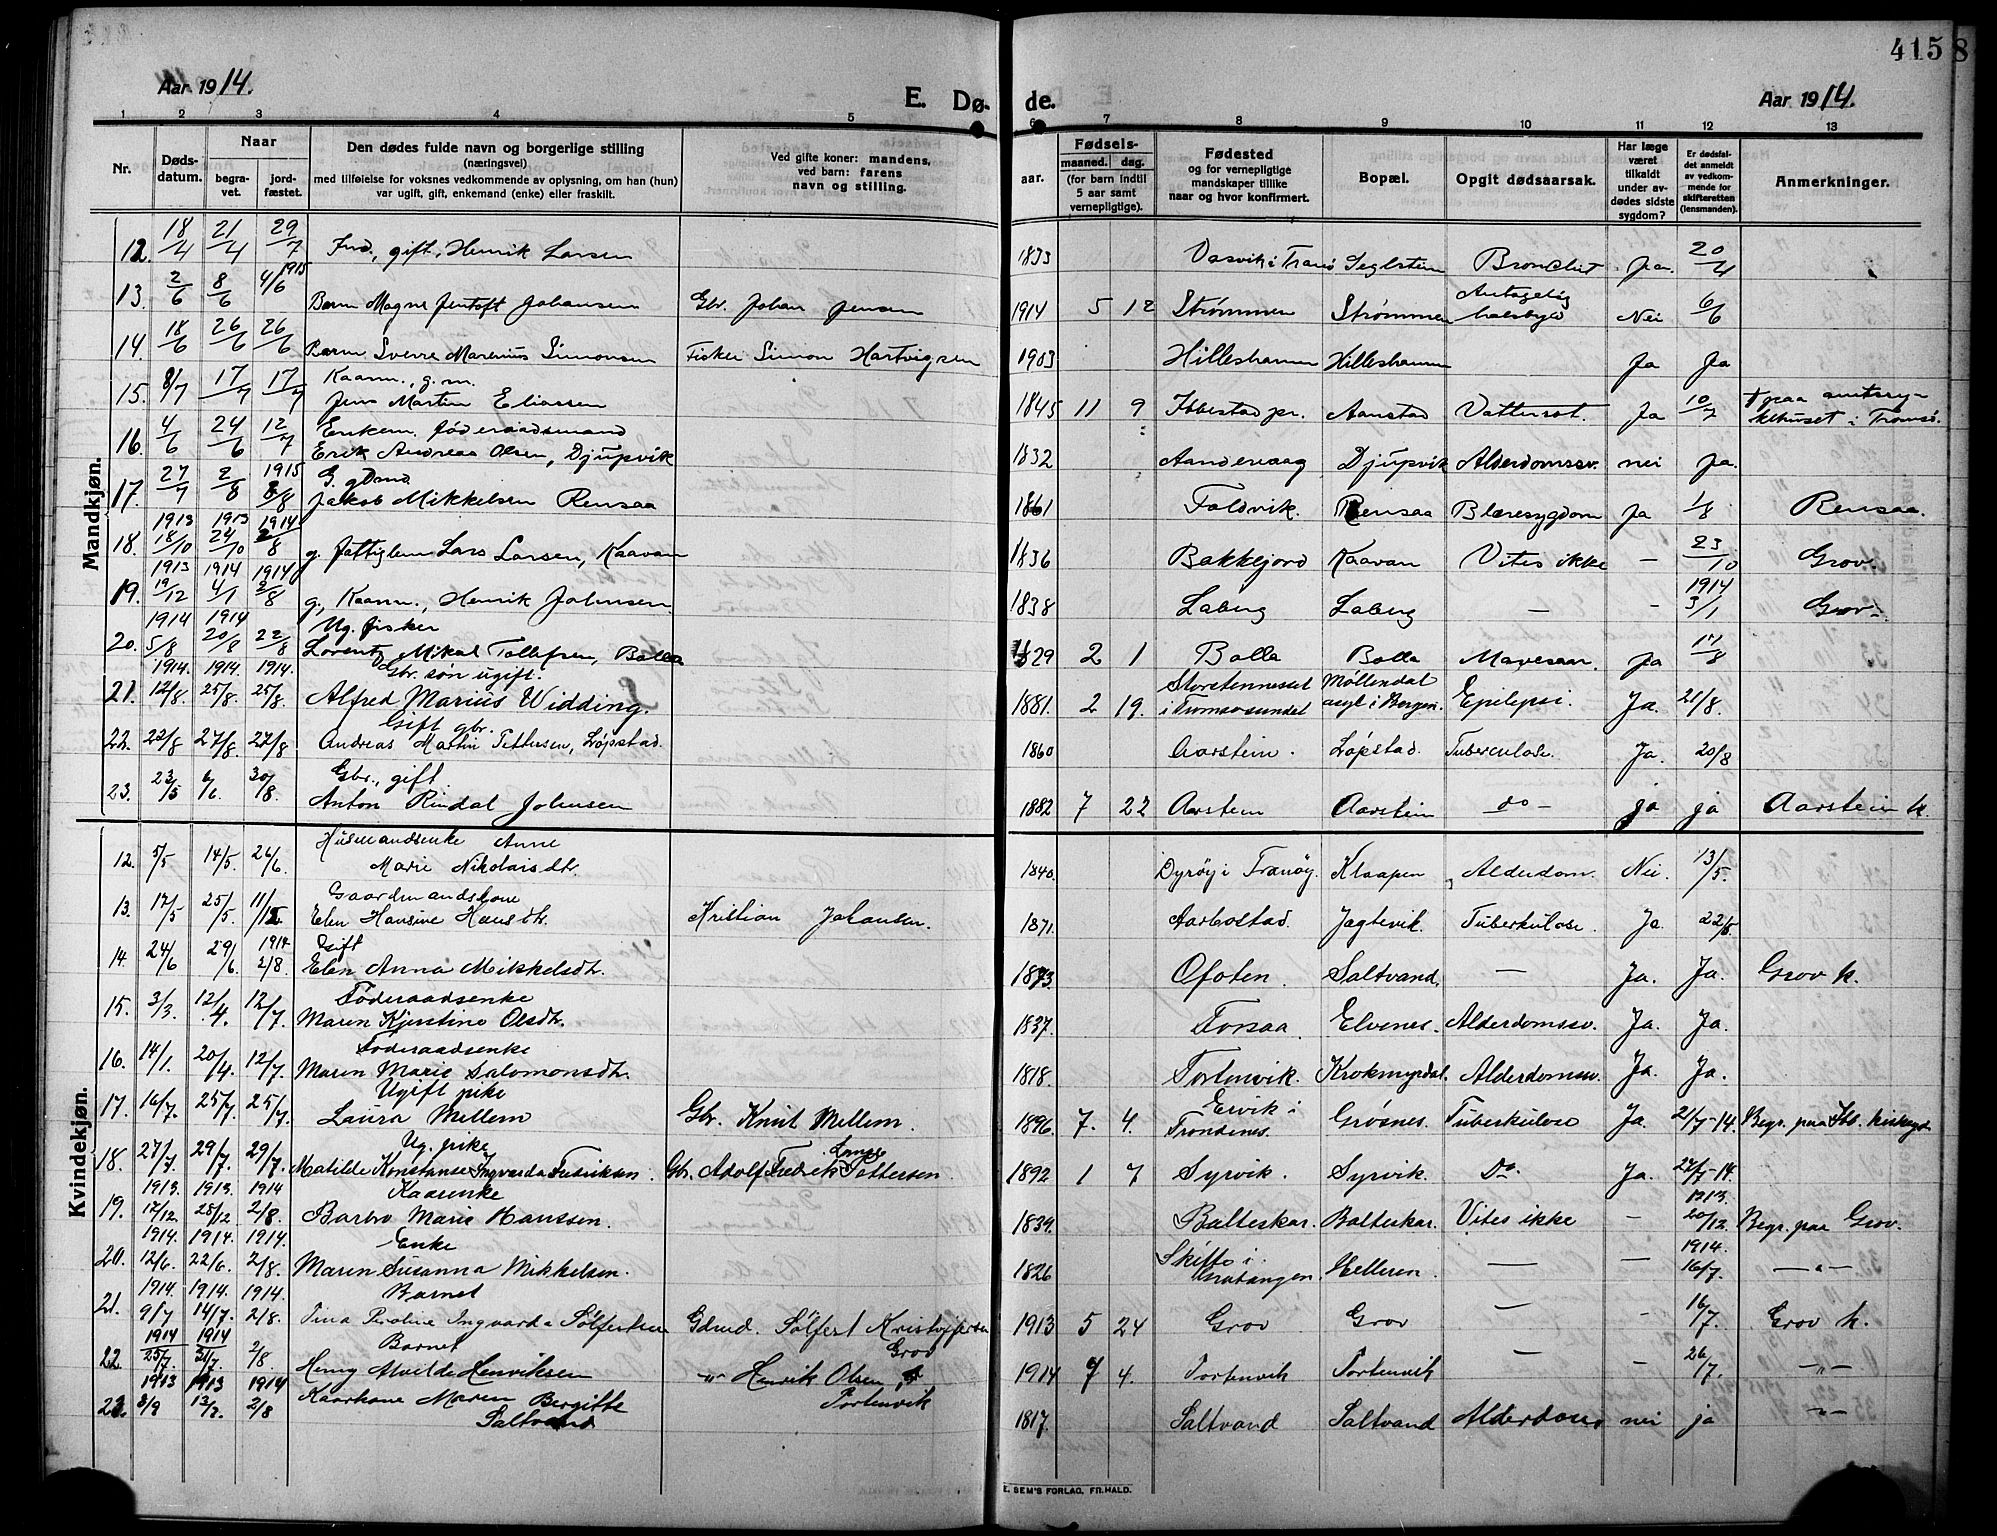 415 8
Aar 1914.
E. Dø- de.
Aar 1914.
1 2 3 4 5 6 7 8 9 10 11 12 13
Nr.
Døds-datum.
Naar
begra-vet.
jord-fæstet.
Den dødes fulde navn og borgerlige stilling
(næringsvei)
med tilføielse for voksnes vedkommende av oplysning, om han (hun)
var ugift, gift, enkemand (enke) eller fraskilt.
Ved gifte koner: mandens,
ved barn: farens
navn og stilling.
Fødsels-
aar.
maaned. dag.
(for barn indtil
5 aar samt
vernepligtige).
Fødested
og for vernepligtige
mandskaper tillike
naar og hvor konfirmert.
Bopæl.
Opgit dødsaarsak.
Har læge
været
tilkaldt
under av-
dødes sidste
sygdom?
Er dødsfal-
det anmeldt
av vedkom-
mende for
skifteretten
(lensmanden).
Anmerkninger.
Mandkjøn.
12. 18/4 21/4 29/7 Ind., gift, Henrik Larsen 1833 Vasvik i Tranö Seglstein Bronchit ja 20/4
13. 2/6 8/6 4/6 1915 Barn Magne Jentoft Johansen Gbr. Johan Jensen 1914 5 12 Strømmen Strømmen Antagelig halsbyld Nei 6/6
14. 18/6 26/6 26/6 Barn Sverre Marenius Simonsen Fisker Simon Hartvigsen 1903 Hilleshamn Hilleshamn Ja Ja
15. 8/7 17/7 17/7 Kaarm., g. m.
Jens Martin Eliassen 1845 11 9 Ibbestad pr. Aanstad Vattersot. Ja 10/7 † paa amtssy-
kehuset i Tromsö.
16. 4/6 24/6 12/7 Enkem. föderaadsmand
Erik Andreas Olsen, Djupvik 1832 Aandervaag Djupvik Alderdomssv. nei Ja.
17. 27/7 2/8 1915 8/8 G. gdmd.
Jakob Mikkelsen Rensaa 1861 Foldvik. Rensaa Blæresygdom Ja 1/8 Rensaa.
18. 1913 18/10 1913 24/10 1914 2/8 g. fattiglem Lars Larsen, Kaavan 1836 Bakkejord Kaavan Vites ikke — 23/10 Grov.
19. 1913 19/12 1914 4/1 1914 2/8 g., Kaarm., Henrik Johnsen. 1838 Laberg Laberg — - 1914 3/1 Grov.
20. 1914 5/8 1914 20/8 22/8 Ug. fisker
Lorentz Mikal Tollefsen, Bolla 1829 2 1 Bolla Bolla Mavesaar. ja 17/8
21. 1914. 12/8. 1914. 25/8. 1914. 25/8. Gbr. søn ugift.
Alfred Marius Widding. 1881. 2 19. Storstennesset
i Tromsøsundet Møllendal
asyl i Bergen. Epilepsi. Ja. 21/8.
22. 22/8 27/8. 27/8 Gift gbr.
Andreas Martin Pettersen, Løpstad. 1860 Aarstein. Løpstad. Tuberculose. Ja. 20/8
23. 23/5 6/6. 30/8. Gbr., gift
Anton Rindal Johnsen 1882 7 22 Aarstein Aarstein do - ja ja Aarstein k.
Kvindekjøn.
12. 5/5 14/5. 26/6 Husmandsenke Anne
Marie Nikolaisdtr. 1840. Dyrøy i Tranöy. Klaapen Alderdom. Nei. 13/5.
13. 17/5 25/5. 11/15 Gaardmandskone
Elen Hansine Hansdtr. Kristian Johansen. 1871. Aarbostad. Jagtevik. Tuberkulose. Ja. 22/5.
14. 24/6 29/6. 1914 2/8. Gift
Elen Anna Mikkelsdtr. 1873. Ofoten. Saltvand. — Ja. Ja. Grov k.
15. 3/3. 12/4. 12/7. Föderaadsenke
Maren Kjerstine Olsdtr. 1837. Forsaa. Elvenes. Alderdomssv. Ja. Ja.
16. 14/1. 20/4. 12/7. Föderaadsenke
Maren Marie Salomonsdtr. 1818. Fortenvik. Krokmyrdal. Alderdomssv. Ja. Ja.
17. 16/7. 25/7. 25/7. Ugift pike
Laura Mellem Gbr. Knut Mellem. 1896. 7. 4. Ervik i
Trondenes. Grøsnes. Tuberkulose Ja. 21/7-14. Begr. paa Ibb. kirkegd.
18. 27/7. 29/7. 29/7. Ug. pike
Matilde Konstanse Ingvarda Fredriksen. Gbr. Adolf Fredrik Pettersen. 1892 1 7 Syrvik. Syrvik. Do. Ja. 27/7-14.
19. 1913. 17/12. 1913. 28/12. 1914 2/8. Kaarenke
Barbro Marie Hanssen. 1839. Balteskar. Balteskar. Vites ikke — 1913. 20/12 Begr. paa Grov.
20. 1914. 12/6. 1914. 22/6. 1914. 2/8. Enke
Maren Susanna Mikkelsen. 1826 Skifte i
Gratangen. Helleren. — — 1914. 16/7. — " —
21. 1914. 9/7 1914. 14/7. 1914. 2/8. Barnet
Tina Peroline Ingvarda Sølfertsen Gdmd. Sølfert Kristoffersen
Grov 1913 5 24 Grov Grov — - 16/7. Grov k.
22. 1914 25/7 1914 31/7. 2/8. Barnet
Henny Alvilde Henriksen " Henrik Olsen
Fortenvik 1914 7 4. Fortenvik Fortenvik — - 26/7. - " -
23. 1913 8/9 1913 1914 2/8 Kaarkone Maren Bergitte
Saltvand 1817. Saltvand Saltvand Alderdoms nei ja - " -
E. SEM'S FORLAG, FR.HALD.